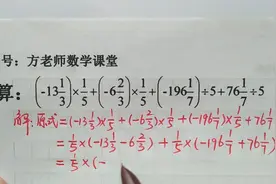 号：方老师数学课堂
算：(-13 1/3)×1/5+(-6 2/3)×1/5+(-196 1/7)÷5+76 1/7÷5
解：原式=(-13 1/3)×1/5+(-6 2/3)×1/5+(-196 1/7)×1/5+76 1/7
=1/5×(-13 1/3-6 2/3)+1/5×(-196 1/7+76 1/7)
=1/5×(-